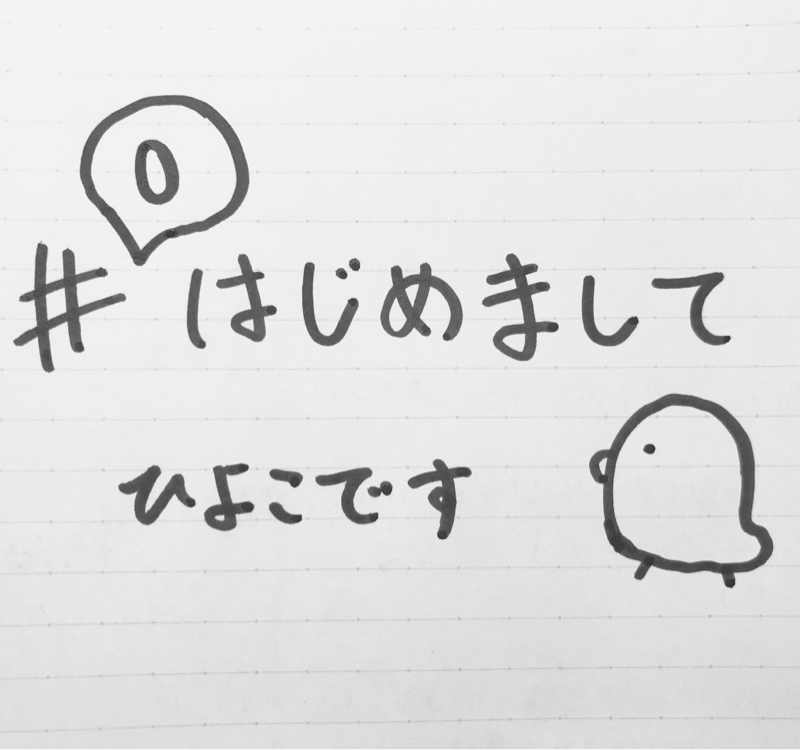 0
# はじめまして
ひよこです